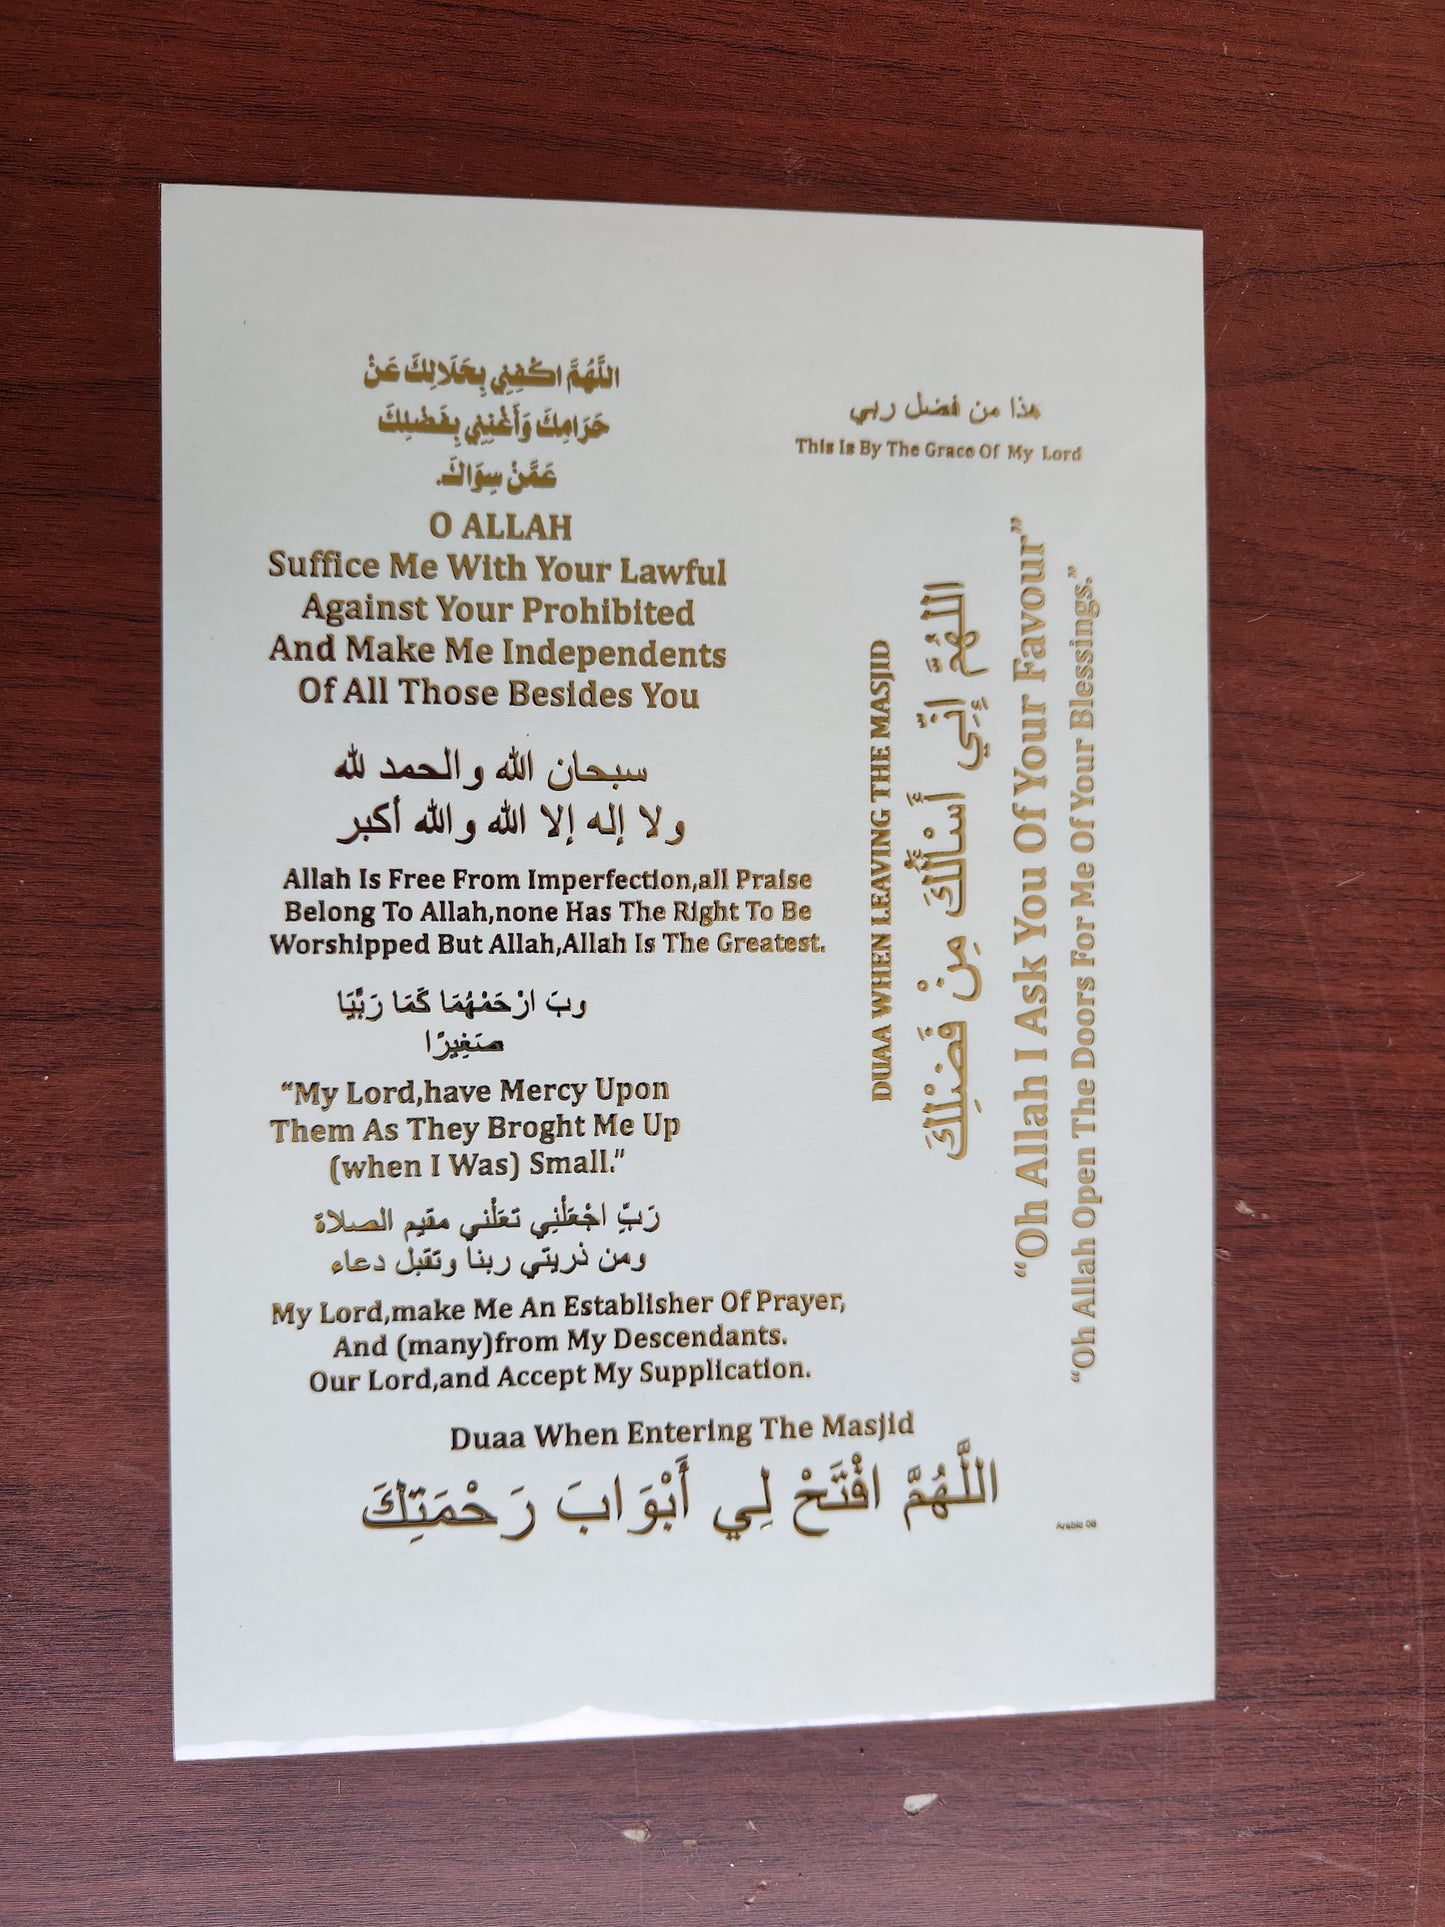 اللَّهُمَّ اكْفِنِي بِحَلَالِكَ عَنْ
حَرَامِكَ وَأَغْنِنِي بِفَضْلِكَ
عَمَّنْ سِوَاكَ.
O ALLAH
Suffice Me With Your Lawful
Against Your Prohibited
And Make Me Independents
Of All Those Besides You
سبحان الله والحمد لله
ولا إله إلا الله والله أكبر
Allah Is Free From Imperfection,all Praise
Belong To Allah,none Has The Right To Be
Worshipped But Allah,Allah Is The Greatest.
وبَ ارْحَمْهُمَا كَمَا رَبَّيَا
صَغِيرًا
“My Lord,have Mercy Upon
Them As They Broght Me Up
(when I Was) Small.”
رَبِّ اجْعَلْنِي تعَلْني مقيم الصلاة
ومن ذريتي ربنا وتقبل دعاء
My Lord,make Me An Establisher Of Prayer,
And (many)from My Descendants.
Our Lord,and Accept My Supplication.
Duaa When Entering The Masjid
اللَّهُمَّ افْتَحْ لِي أَبْوَابَ رَحْمَتِكَ
هذا من فضل ربي
This Is By The Grace Of My Lord
DUAA WHEN LEAVING THE MASJID
اللهُمَّ إِنِّي أَسْأَلُكَ مِنْ فَضْلِكَ
“Oh Allah I Ask You Of Your Favour”
“Oh Allah Open The Doors For Me Of Your Blessings.”
Arabic 08